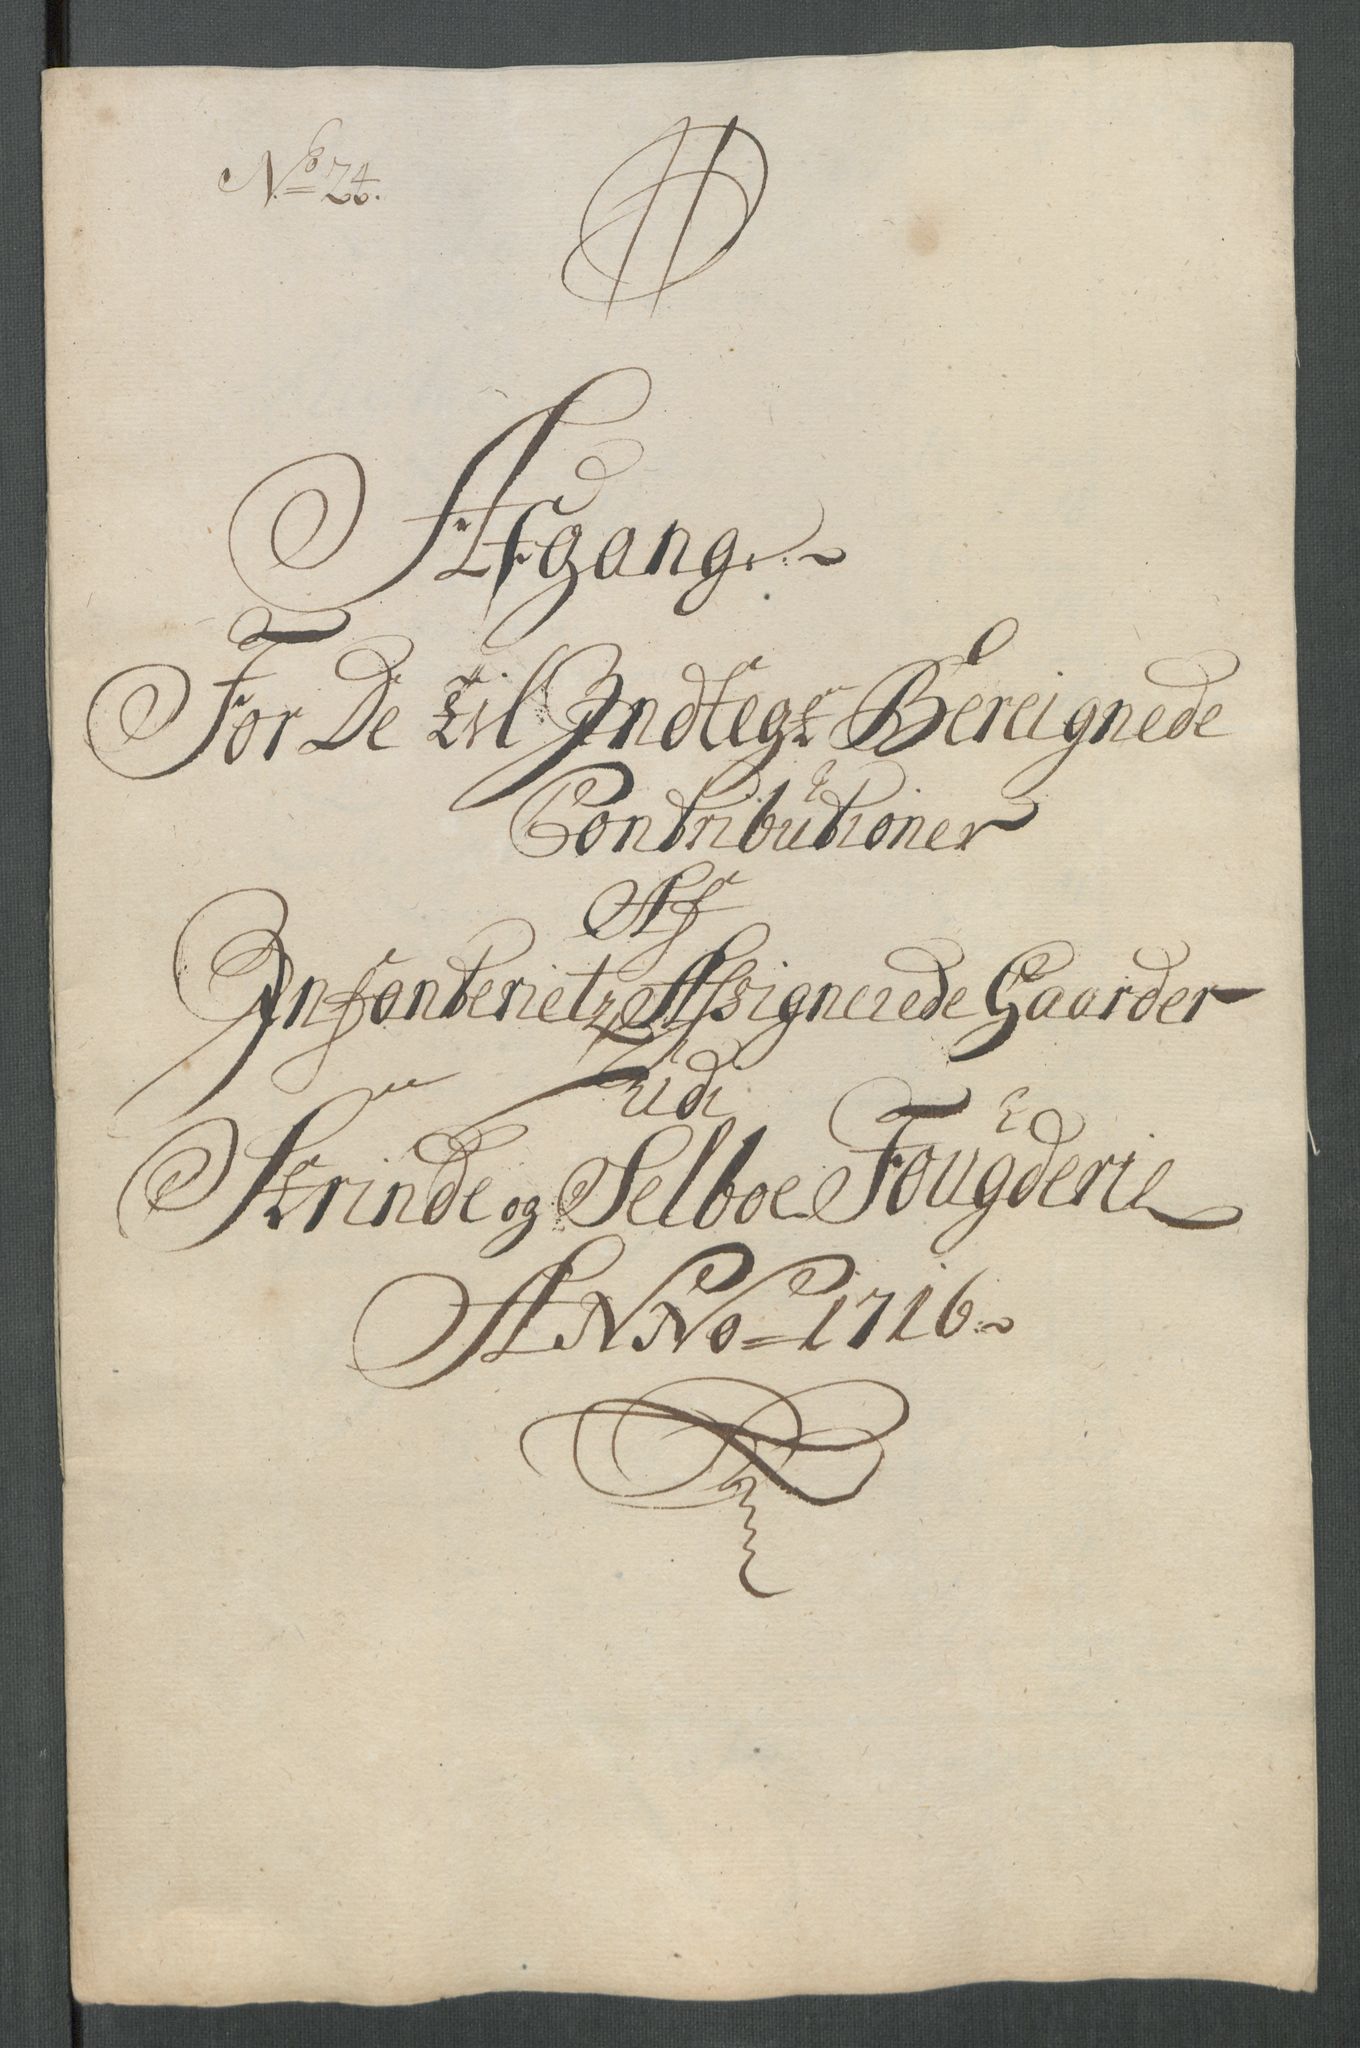 No 24.
Afgang
For De til Indtegt Bereignede
Contributioner
Af
Infanterietz Assignerede Gaarder
Udi
Strinde og Selboe Fougderie
ANNo 1716